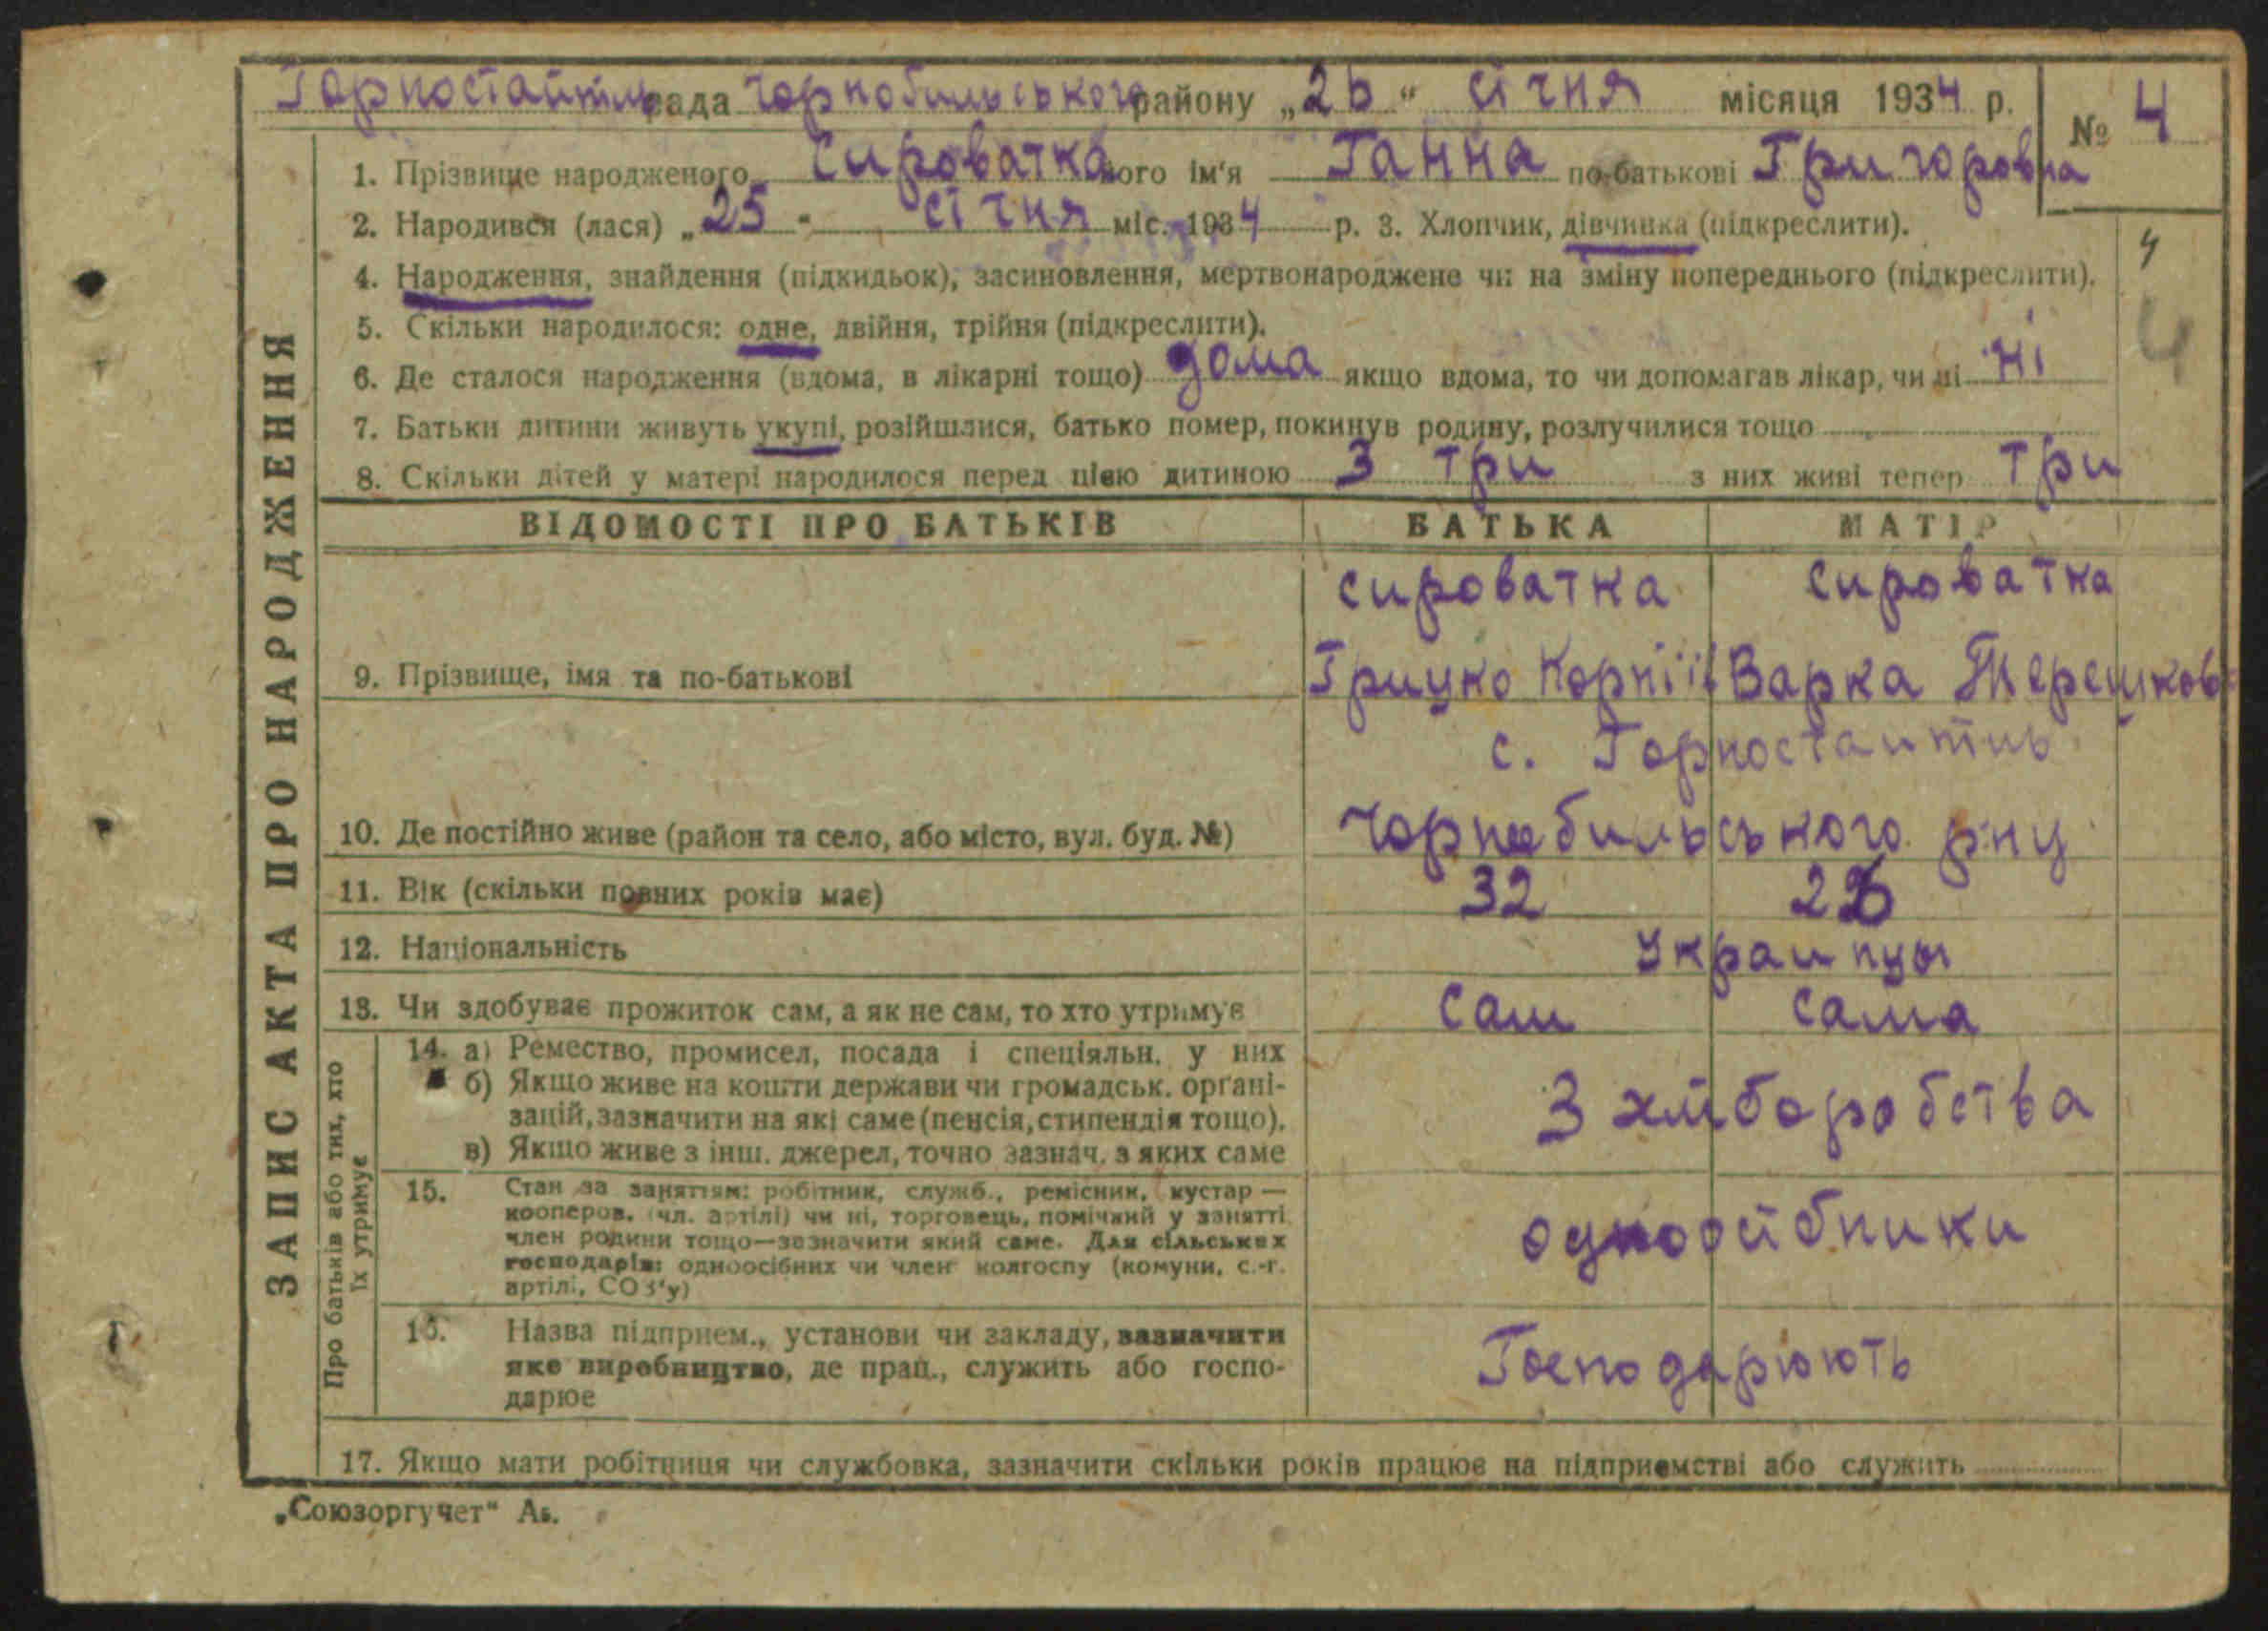 Горностайпіль рада Чорнобильського району „26“ січня місяця 1934 р.
№ 4
1. Прізвище народженого Сироватка його ім'я Ганна по-батькові Григоровна
2. Народився (лася) „25“ січня міс. 1934 р. 3. Хлопчик, дівчинка (підкреслити).
4
4. Народження, знайдення (підкидьок), засиновлення, мертвонароджене чи на зміну попереднього (підкреслити).
5. Скільки народилося: одне, двійня, трійня (підкреслити).
4
6. Де сталося народження (вдома, в лікарні тощо) дома якщо вдома, то чи допомагав лікар, чи ні ні
7. Батьки дитини живуть укупі, розійшлися, батько помер, покинув родину, розлучилися тощо
8. Скільки дітей у матері народилося перед цією дитиною 3 три з них живі тепер три
ЗАПИС АКТА ПРО НАРОДЖЕННЯ
ВІДОМОСТІ ПРО БАТЬКІВ БАТЬКА МАТІР
сироватка сироватка
9. Прізвище, імя та по-батькові Грицко Корніїв Варка Терешков
с. Горностаипіль
10. Де постійно живе (район та село, або місто, вул. буд. №) Чорнобильського р-ну
11. Вік (скільки повних років має) 32
12. Національність Украинцы
13. Чи здобуває прожиток сам, а як не сам, то хто утримує сам сама
Про батьків або тих, хто їх утримує
14. а) Ремество, промисел, посада і спеціяльн. у них
б) Якщо живе на кошти держави чи громадськ. орґані-
зацій, зазначити на які саме (пенсія, стипендія тощо).
в) Якщо живе з інш. джерел, точно зазнач. з яких саме
З хліборобства
15. Стан за заняттям: робітник, служб., ремісник, кустар —
кооперов. (чл. артілі) чи ні, торговець, помічний у занятті
член родини тощо—зазначити який саме. Для сільських
господарів: одноосібних чи член колгоспу (комуни, с.-г.
артілі, СОЗ'у)
одноосібники
16. Назва підприєм., установи чи закладу, зазначити
яке виробництво, де прац., служить або госпо-
дарює
Господарюють
17. Якщо мати робітниця чи службовка, зазначити скільки років працює на підприємстві або служить
„Союзоргучет“ А5.